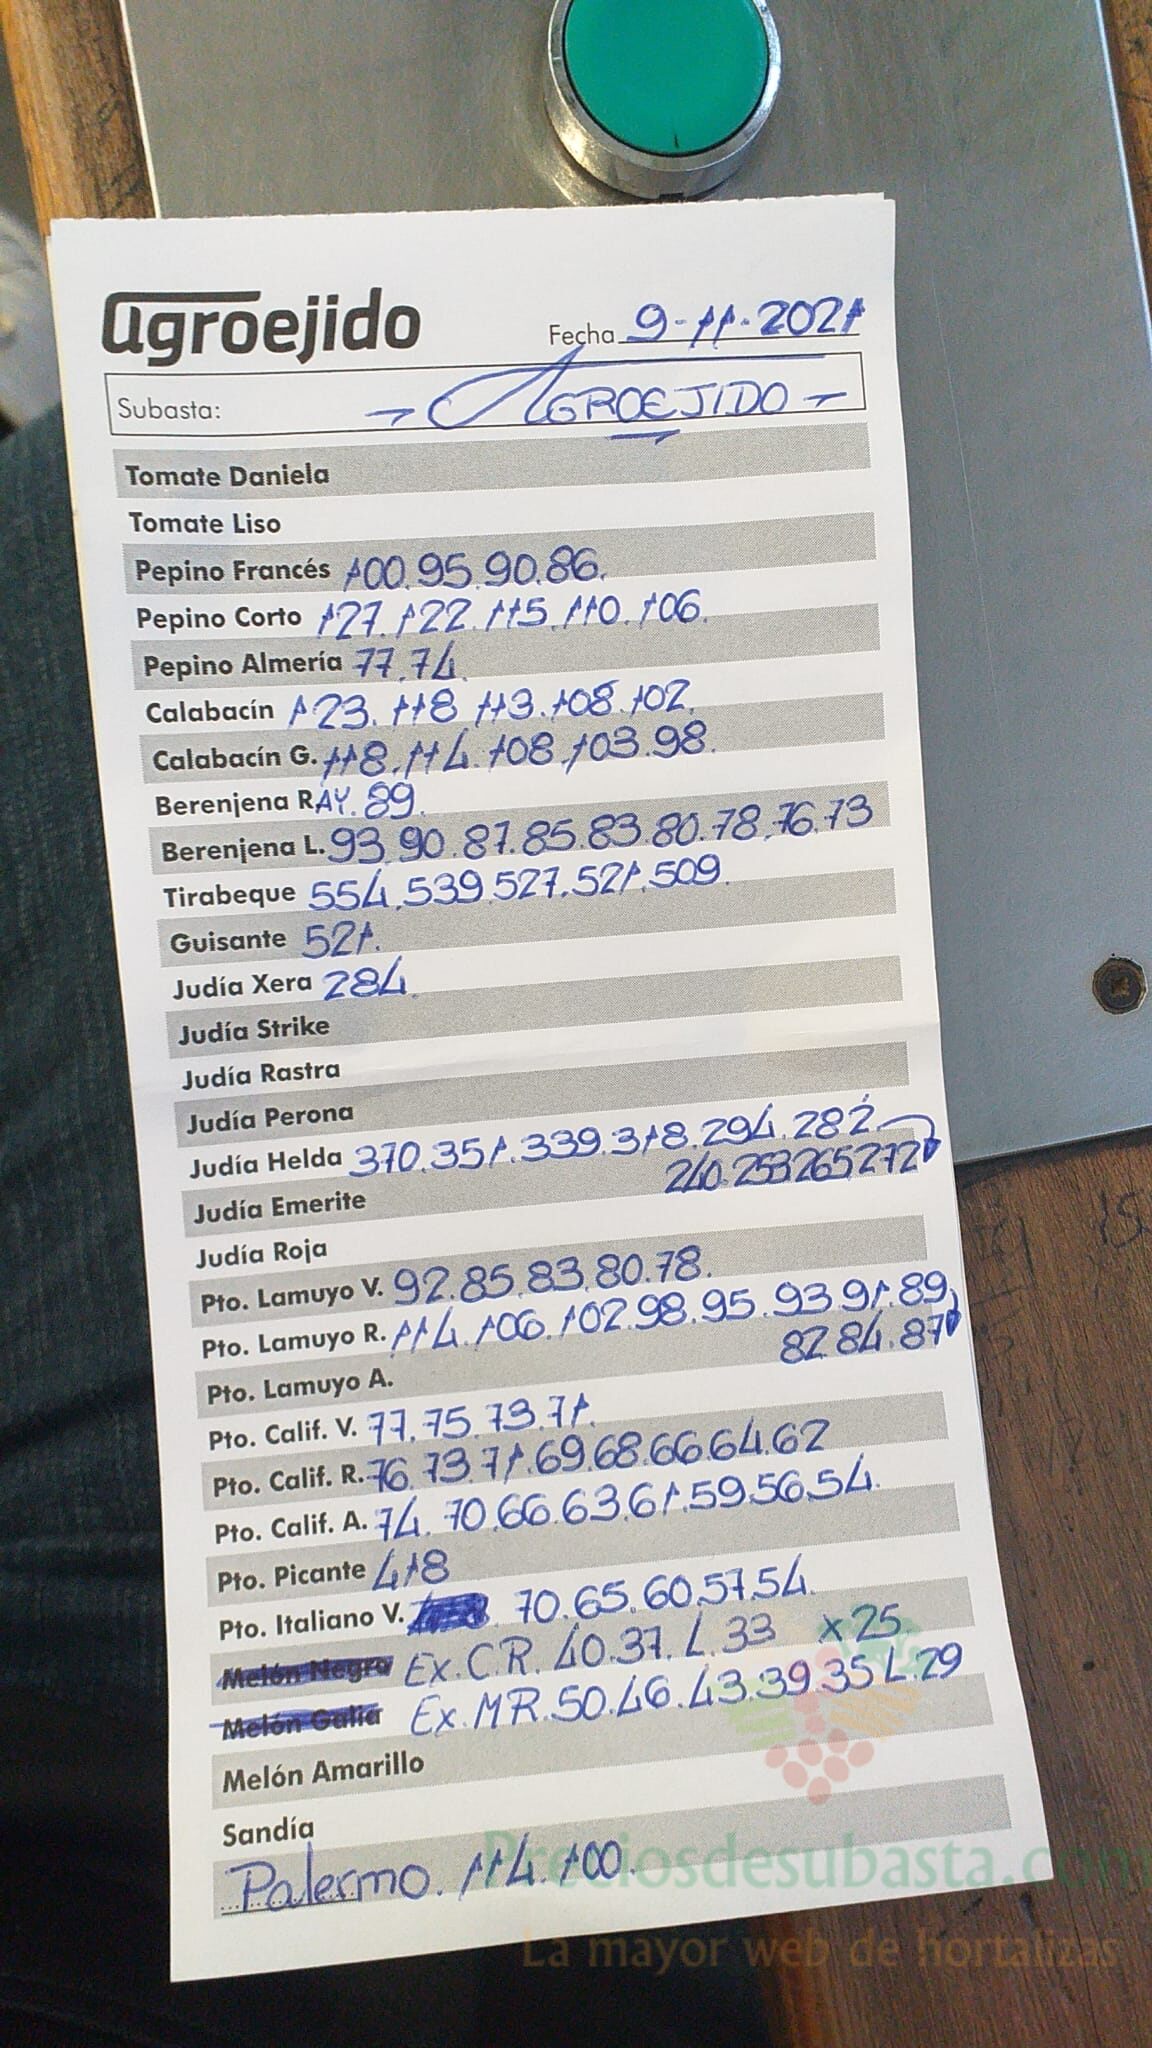 agroejido
Fecha 9-11-2021
Subasta: AGROEJIDO
Tomate Daniela
Tomate Liso
Pepino Francés 100.95.90.86.
Pepino Corto 127.122.115.110.106.
Pepino Almería 77.74.
Calabacín 123.118 113.108.102.
Calabacín G. 118.114.108.103.98.
Berenjena RAY.89.
Berenjena L. 93.90.87.85.83.80.78.76.73
Tirabeque 554.539.527.521.509.
Guisante 521.
Judía Xera 284.
Judía Strike
Judía Rastra
Judía Perona
Judía Helda 370.351.339.318.294.282.
240.253265272
Judía Emerite
Judía Roja
Pto. Lamuyo V. 92.85.83.80.78.
Pto. Lamuyo R. 114.106.102.98.95.93.91.89.
82.84.87
Pto. Lamuyo A.
Pto. Calif. V. 77.75.73.71.
Pto. Calif. R. 76.73.71.69.68.66.64.62
Pto. Calif. A. 74.70.66.63.61.59.56.54.
Pto. Picante 418
Pto. Italiano V. 70.65.60.57.54.
Melón Negro Ex.C.R. 40.37.L.33 x25
Melón Galia Ex.MR.50.46.43.39.35 L.29
Melón Amarillo
Sandía
Palermo. 114.100.
Preciosdesubasta.com
La mayor web de hortalizas